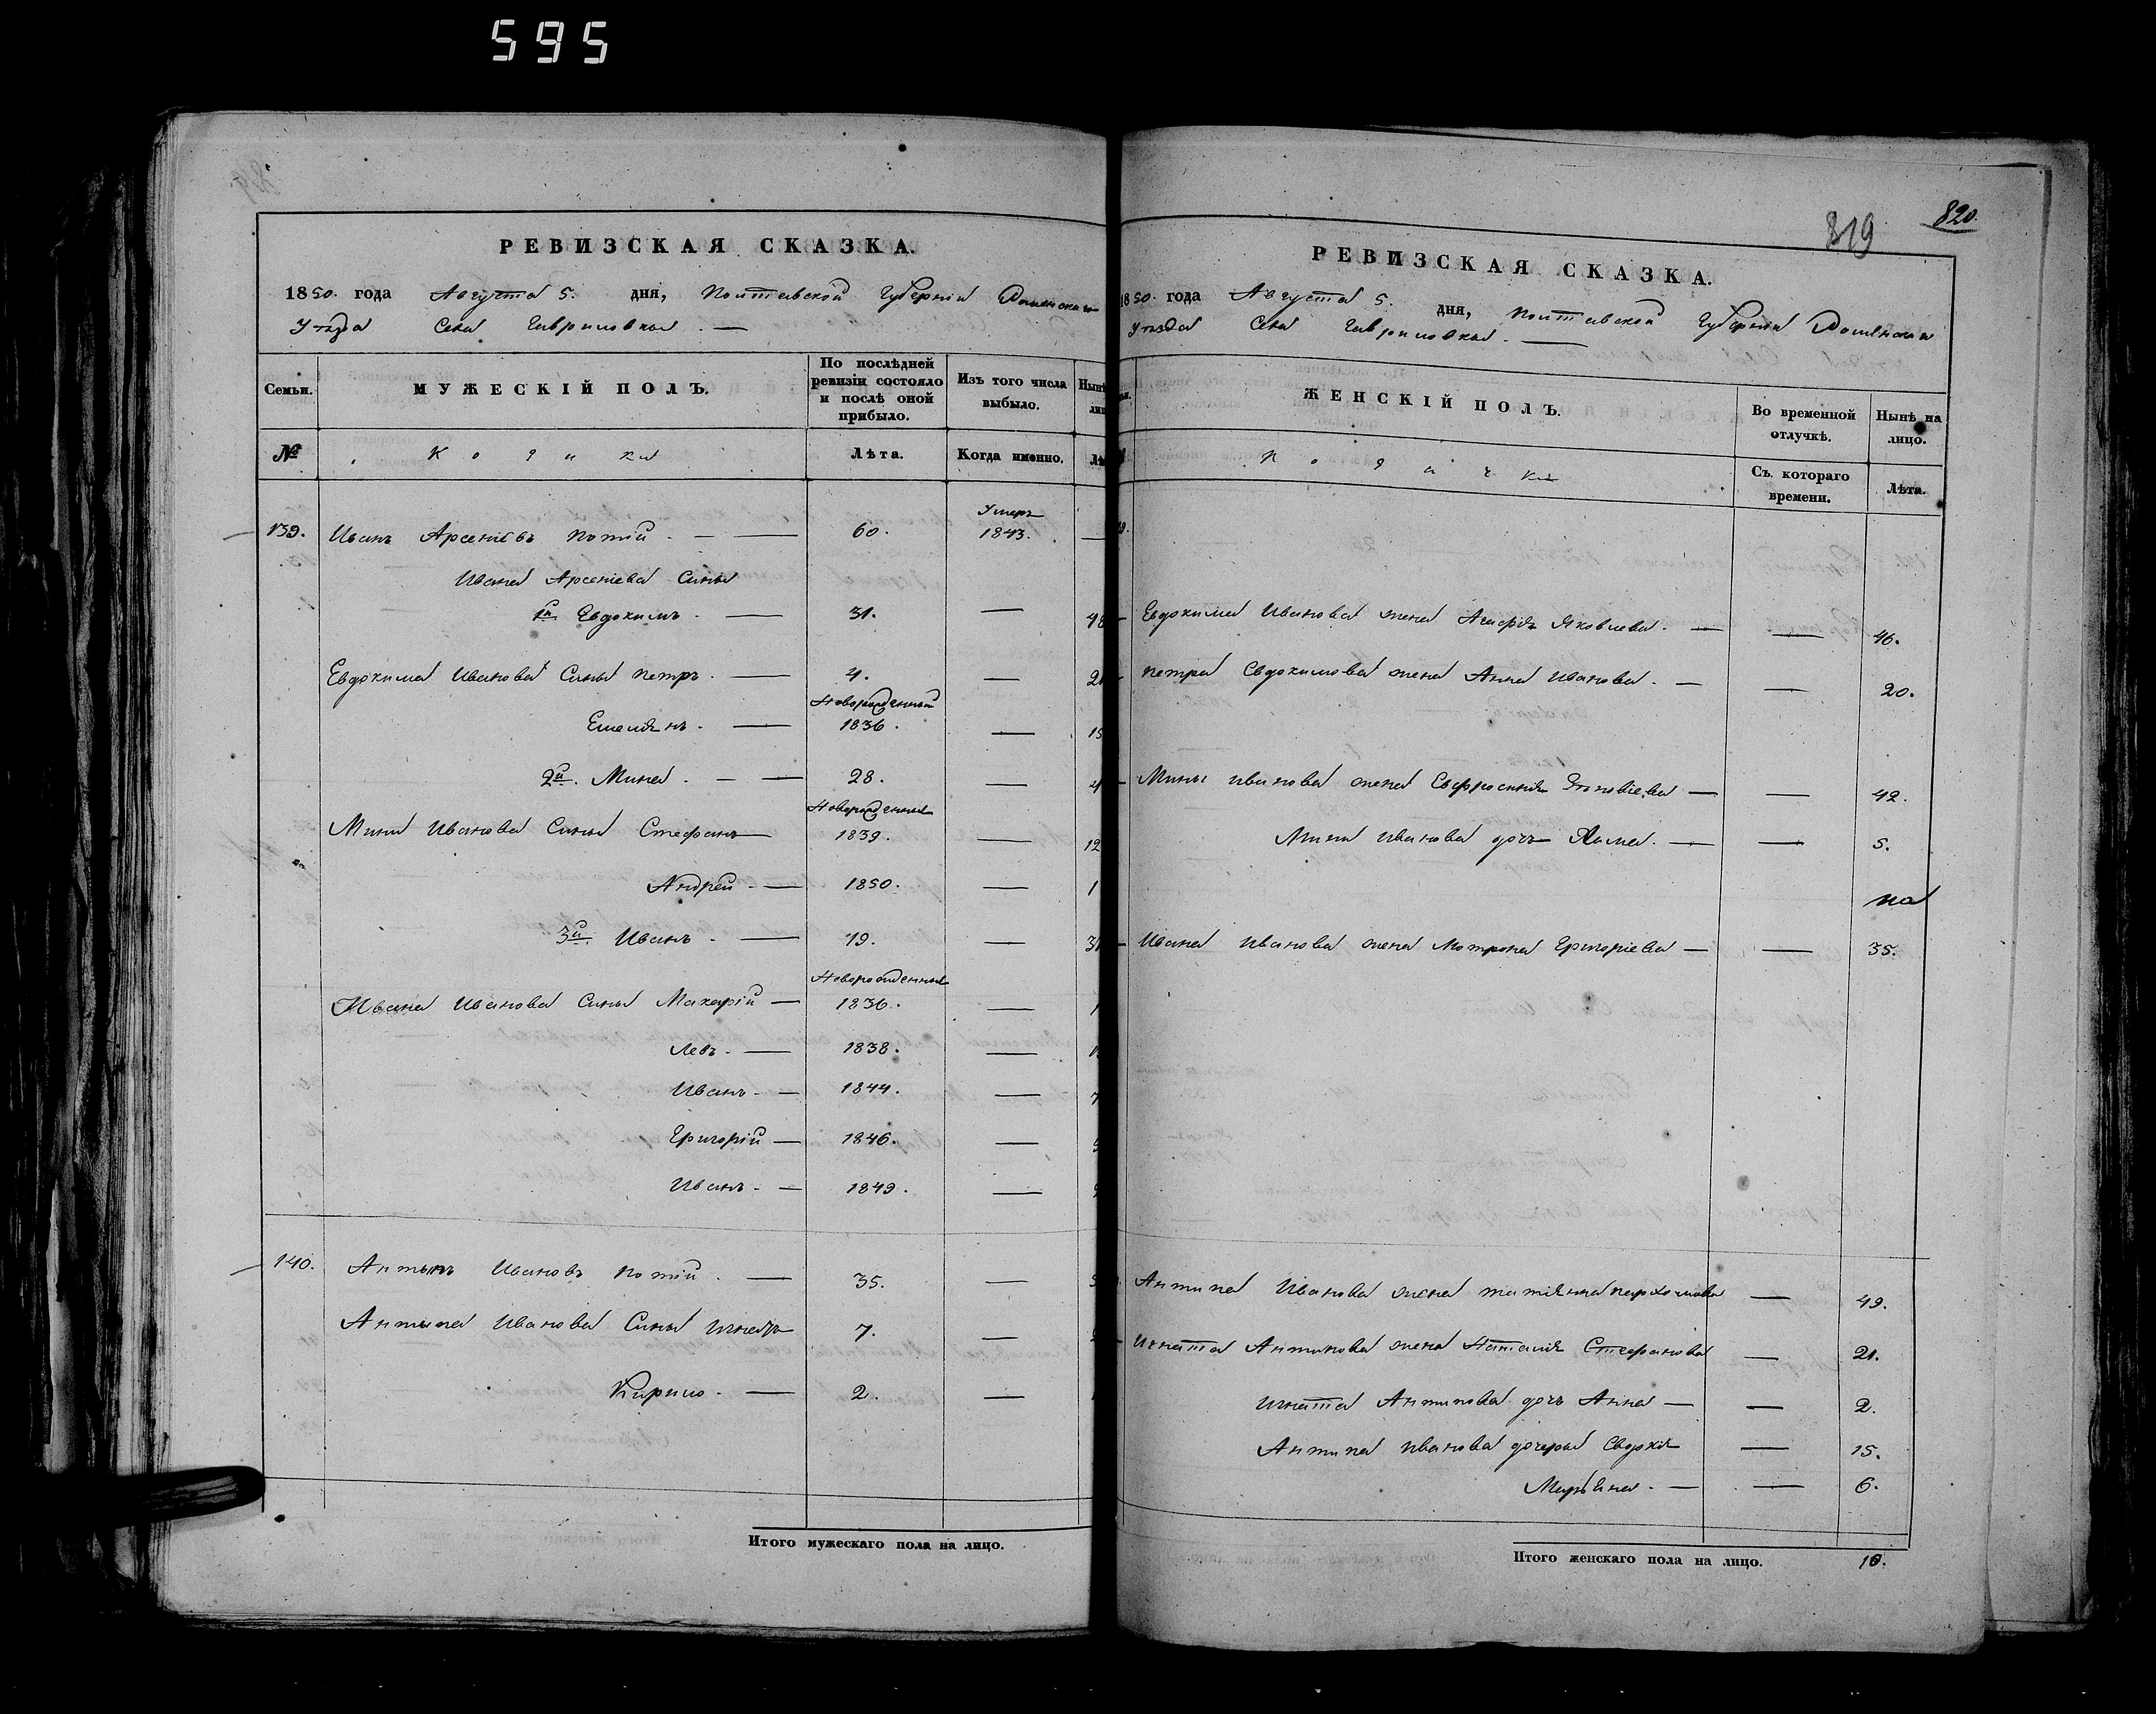 595
РЕВИЗСКАЯ СКАЗКА.
1850. года Августа 5. дня, Полтавской Губерніи Роменскаго
Уѣзда Села Гавриловки. —
Семьи. МУЖЕСКІЙ ПОЛЪ. По послѣдней ревизіи состояло и послѣ оной прибыло. Изъ того числа выбыло. Нынѣ
№ Козаки Лѣта. Когда именно.
139. Иванъ Арсеніевъ Потій. — 60. Умеръ 1843. —
Ивана Арсеніева Сины
1й Евдокимъ. — 31. — 48
Евдокима Иванова Сины Петръ. — 4. — 21
Новорожденный
Емеліянъ. — 1836. — 15
2й. Мина. — 28. — 4
Новорожденные
Мины Иванова Сины Стефанъ — 1839. — 12
Андрей. — 1850. — 1
3й. Иванъ. — 19. — 3
Новорожденные
Ивана Иванова Сины Макарій — 1836. — 1
Левъ. — 1838. — 1
Иванъ. — 1844. — 7
Григорій — 1846. —
Иванъ. — 1849. —
140. Антипъ Ивановъ Потій. — 35. —
Антипа Иванова Сины Игнатъ 7. —
Кирило. — 2. —
Итого мужескаго пола на лицо.
819 820.
РЕВИЗСКАЯ СКАЗКА.
1850. года Августа 5. дня, Полтавской Губерніи Роменскаго
Уѣзда Села Гавриловки. —
ЖЕНСКІЙ ПОЛЪ. Во временной отлучкѣ. Нынѣ на лицо.
Козачки Съ котораго времени. Лѣта.
Евдокима Иванова жена Агафія Яковлева. — — 46.
Петра Евдокимова жена Анна Иванова. — — 20.
Мины Иванова жена Евфросинія Зѣновіева — — 42.
Мины Иванова дочь — — 5.
Ивана Иванова жена Мотрона Григоріева — — 35.
Антипа Иванова жена Татіянна Пархомова — 49.
Игната Антипова жена Наталія Стефанова — 21.
Игната Антипова дочь Анна — — 2.
Антипа Иванова дочеры Евдокія — 15.
Маріяна. — — 6.
Итого женскаго пола на лицо. 10.